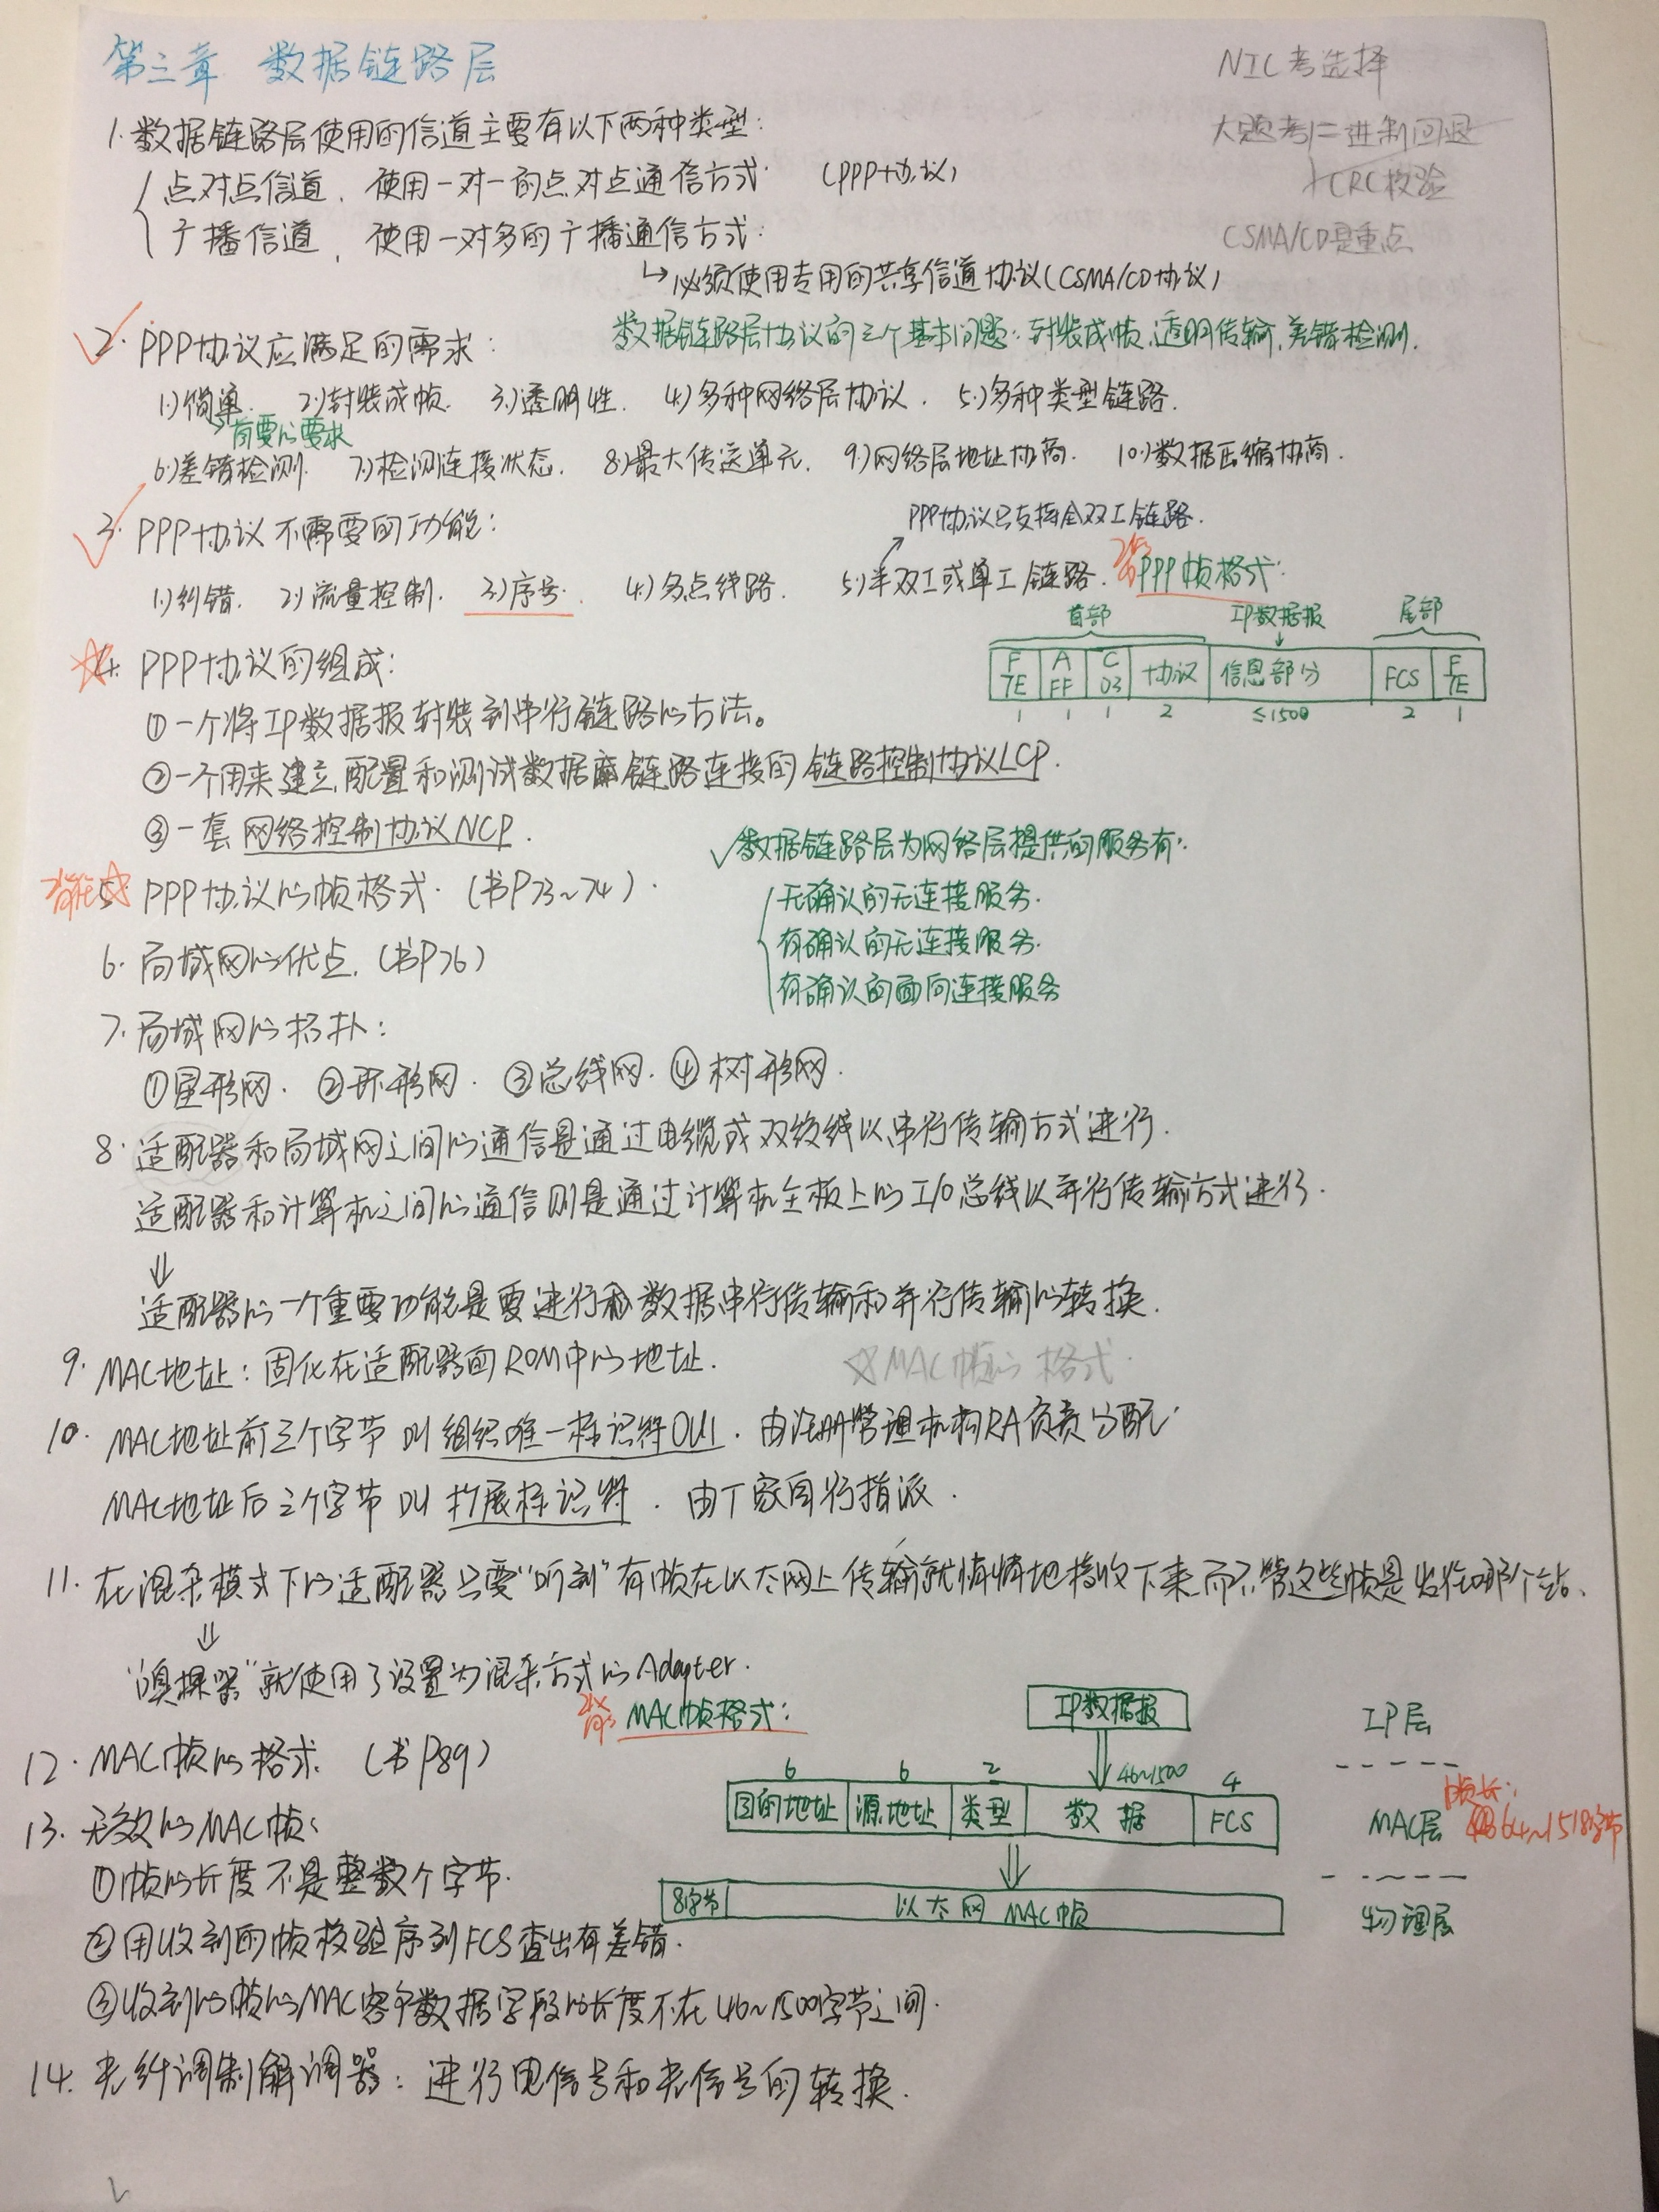 第三章 数据链路层
NIC考选择
大题考二进制回退
+CRC校验
CSMA/CD是重点
1.数据链路层使用的信道主要有以下两种类型:
点对点信道. 使用一对一的点对点通信方式. (PPP协议)
广播信道, 使用一对多的广播通信方式.
↳必须使用专用的共享信道协议(CSMA/CD协议)
数据链路层协议的三个基本问题:封装成帧,透明传输,差错检测.
2. PPP协议应满足的需求:
1)简单. 2)封装成帧. 3)透明性. 4)多种网络层协议. 5)多种类型链路.
首要的要求
6)差错检测. 7)检测连接状态. 8)最大传送单元. 9)网络层地址协商. 10)数据压缩协商.
3. PPP协议不需要的功能:
PPP协议只支持全双工链路.
1)纠错. 2)流量控制. 3)序号. 4)多点线路. 5)半双工或单工链路.
PPP帧格式:
首部 IP数据报 尾部
F 7E A FF C 03 协议 信息部分 FCS F 7E
1 1 1 2 ≤1500 2 1
4. PPP协议的组成:
①一个将IP数据报封装到串行链路的方法。
②一个用来建立,配置和测试数据链路连接的链路控制协议LCP.
③一套网络控制协议NCP.
√数据链路层为网络层提供的服务有:
无确认的无连接服务.
有确认的无连接服务.
有确认的面向连接服务
5. PPP协议的帧格式. (书P73~74).
6. 局域网的优点. (书P76)
7. 局域网的拓扑:
①星形网. ②环形网. ③总线网. ④树形网.
8. 适配器和局域网之间的通信是通过电缆或双绞线以串行传输方式进行.
适配器和计算机之间的通信则是通过计算机主板上的I/O总线以并行传输方式进行.
⇓
适配器的一个重要功能是要进行数据串行传输和并行传输的转换.
9. MAC地址:固化在适配器的ROM中的地址.
☆MAC帧的格式.
10. MAC地址前三个字节叫组织唯一标识符OUI. 由注册管理机构RA负责分配.
MAC地址后三个字节叫扩展标识符. 由厂家自行指派.
11. 在混杂模式下的适配器只要“听到”有帧在以太网上传输就悄悄地接收下来而不管这些帧是发往哪个站.
⇓
“嗅探器”就使用了设置为混杂方式的Adapter.
MAC帧格式:
IP数据报 IP层
12. MAC帧的格式. (书P89)
6 6 2 46~1500 4
目的地址 源地址 类型 数据 FCS MAC层
帧长:
64~1518字节
13. 无效的MAC帧:
①帧的长度不是整数个字节.
8字节 以太网MAC帧 物理层
②用收到的帧检验序列FCS查出有差错.
③收到的帧的MAC客户数据字段的长度不在46~1500字节之间.
14. 光纤调制解调器:进行电信号和光信号的转换.